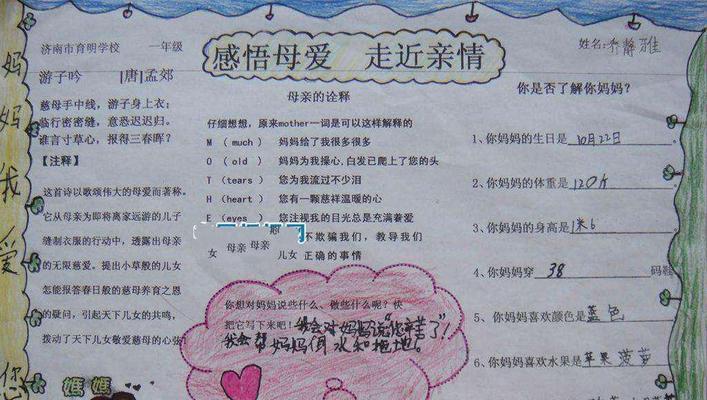 济南市育明学校 一年级
感悟母爱 走近亲情
姓名:乔静雅
游子吟 [唐]孟郊
慈母手中线，游子身上衣；
临行密密缝，意恐迟迟归。
谁言寸草心，报得三春晖？
【注释】
这首诗以歌颂伟大的母爱而著称。
它从母亲为即将离家远游的儿子
缝制衣服的行动中，透露出母亲
的无限慈爱。提出小草般的儿女
怎能报答春日般的慈母养育之恩
的疑问，引起天下儿女的共鸣，
拨动了天下儿女敬爱慈母的心弦!
母亲的诠释
仔细想想，原来mother一词是可以这样解释的
M （much） 妈妈给了我很多很多
O （old） 妈妈为我操心,白发已爬上了您的头
T （tears） 您为我流过不少泪
H （heart） 您有一颗慈祥温暖的心
E （eyes） 您注视我的目光总是充满着爱
不欺骗我们，教导我们
女 母亲 母亲 儿女 正确的事情
你想对妈妈说些什么、做些什么呢？快
把它写下来吧！我会对妈妈说“您辛苦了”!
我会帮妈妈倒水和拖地。
你是否了解你妈妈?
1、你妈妈的生日是10月22日
2、你妈妈的体重是120斤
3、你妈妈的身高是1米6
4、你妈妈穿 38 码鞋
5、你妈妈喜欢颜色是蓝色
6、你妈妈喜欢水果是苹果 菠萝
妈妈我爱您
媽媽